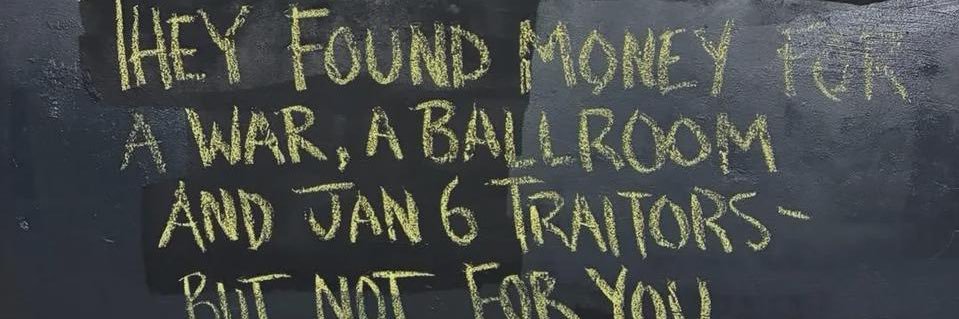 THEY FOUND MONEY FOR
A WAR, A BALLROOM
AND JAN 6 TRAITORS-
BUT NOT FOR YOU